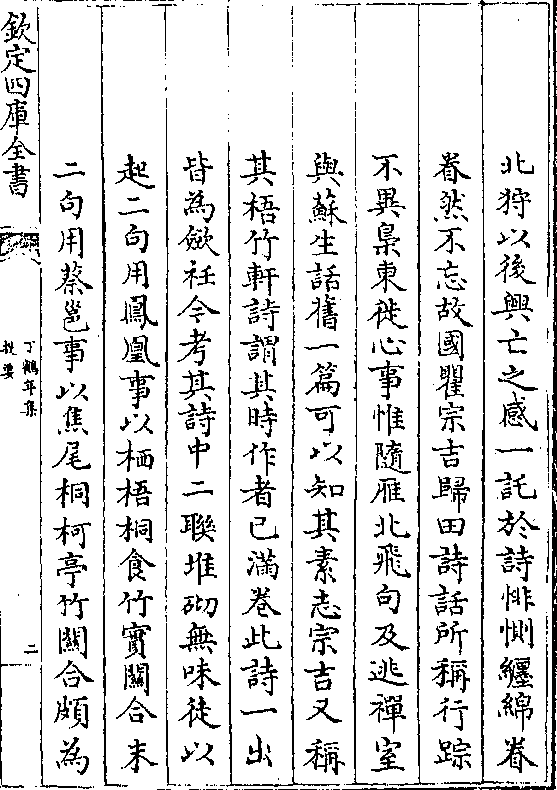 北狩以後興亡之感一託於詩悱惻纒綿眷
眷然不忘故國瞿宗吉歸田詩話所稱行踪
不異梟東徙心事惟隨雁北飛句及逃禪室
與蘇生話舊一篇可以知其素志宗吉又稱
其梧竹軒詩謂其時作者已滿卷此詩一出
皆為斂衽今考其詩中二聯堆砌無味徒以
起二句用鳳凰事以栖梧桐食竹實關合末
二句用蔡邕事以焦尾桐柯亭竹關合頗為
欽定四庫全書
丁鶴年集
提要
二